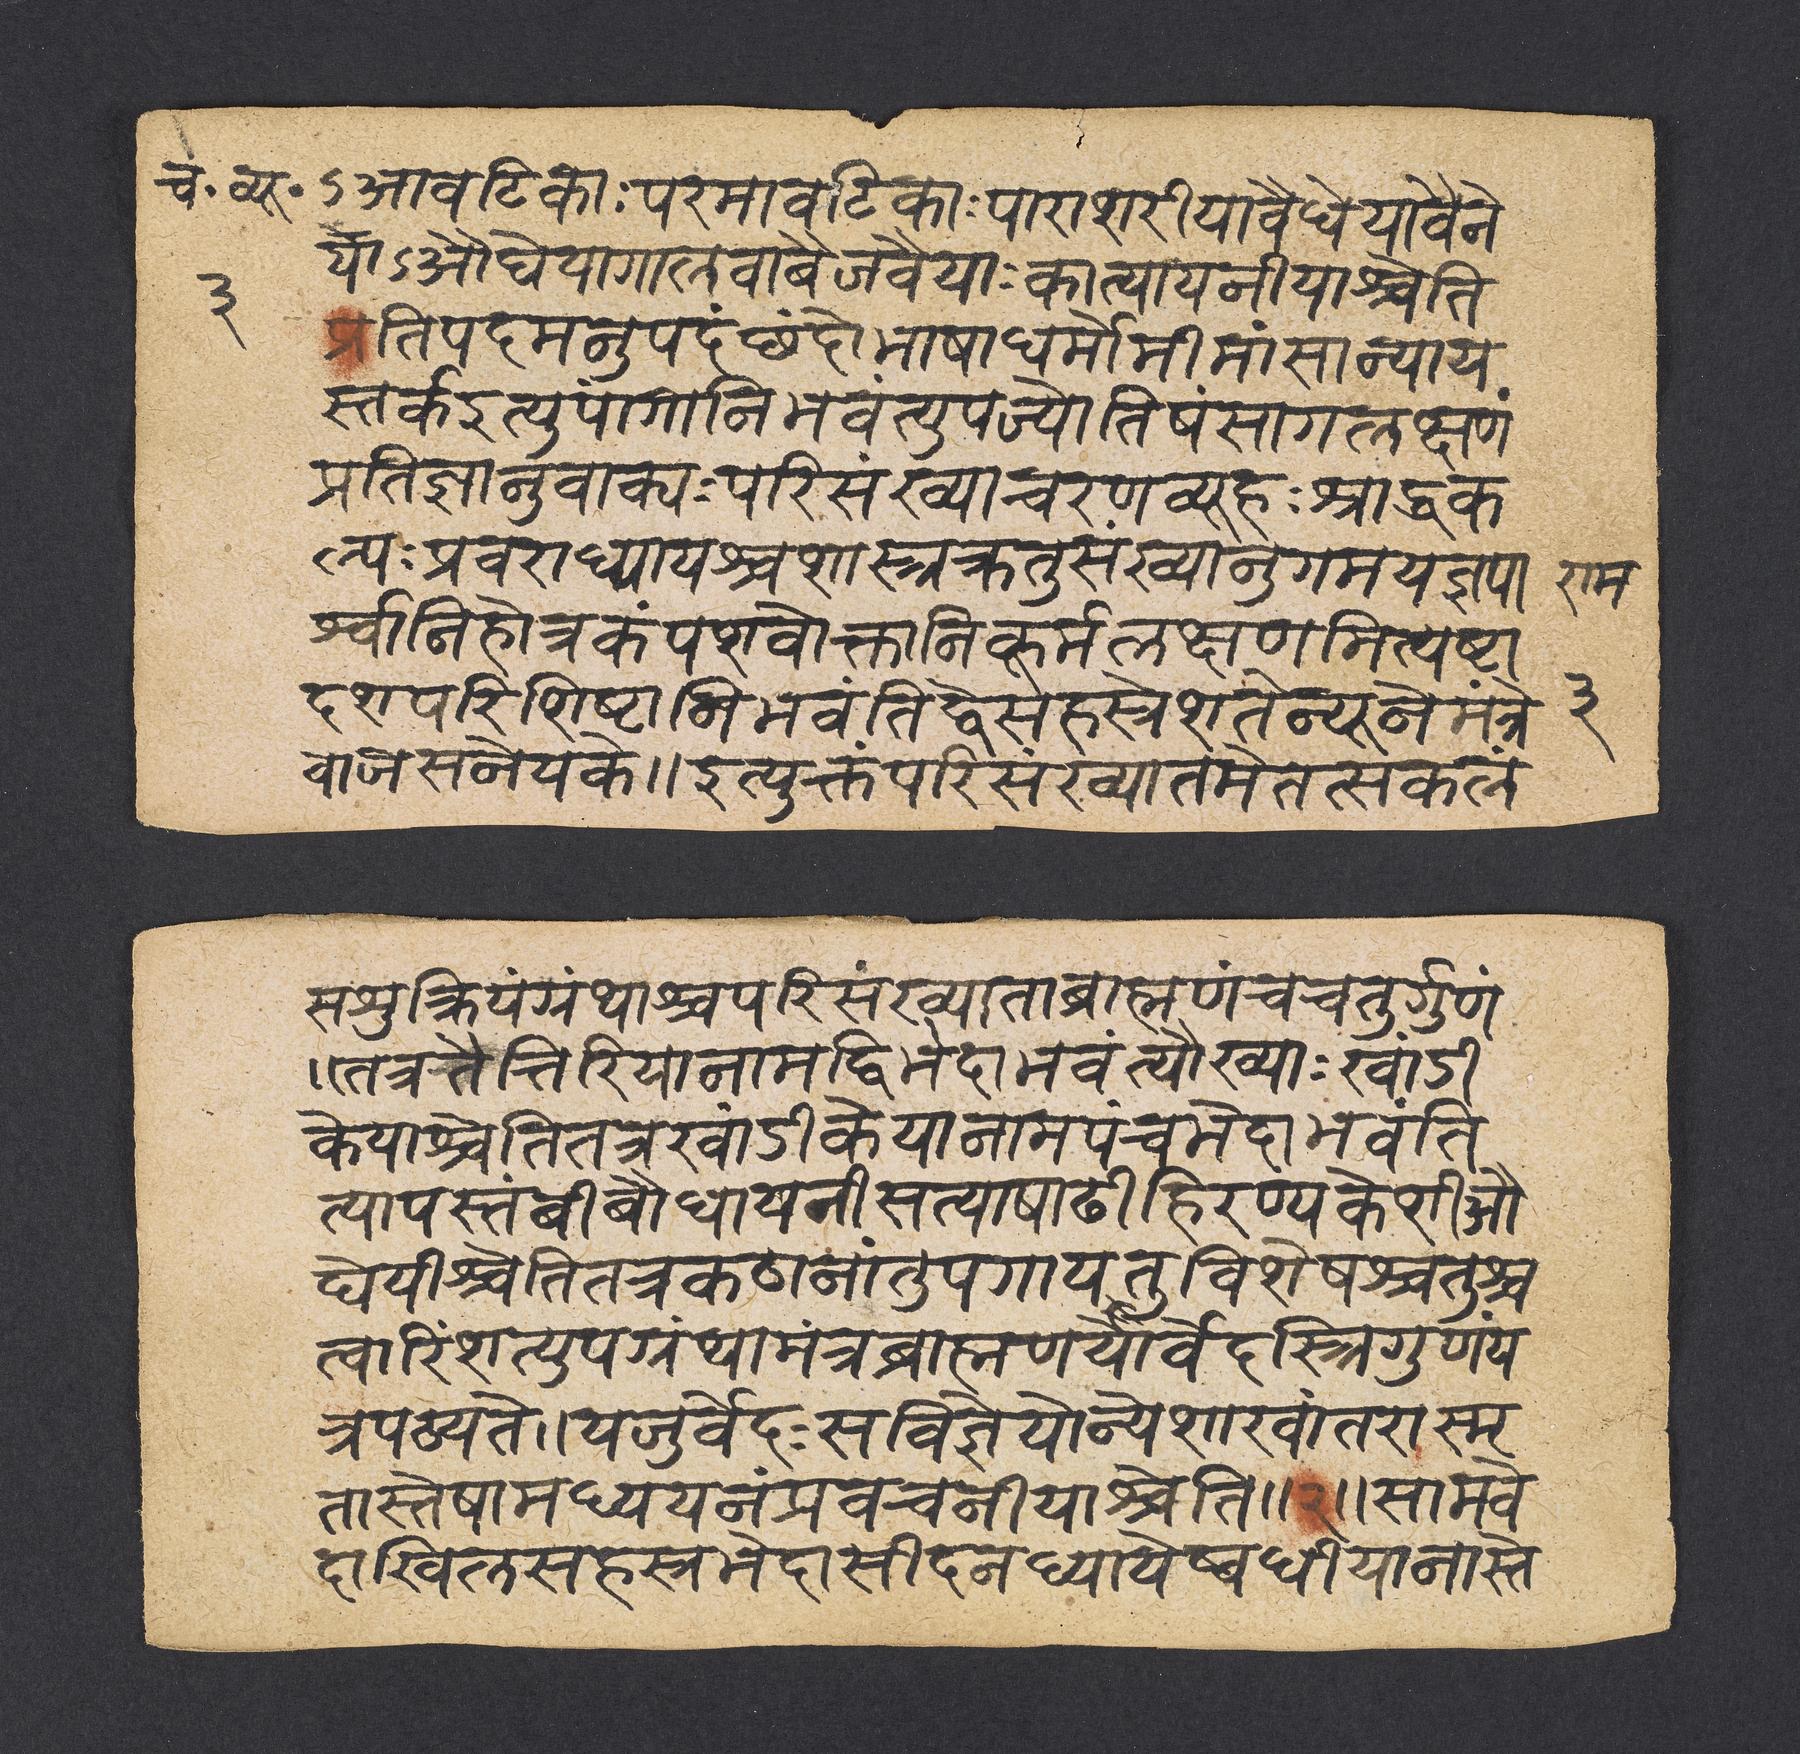 च. व्यू. ऽआवटिकाः परमावटिकाः पाराशरीया वैधेया वैने
३
या ऽऔघेया गालवा बैजवैयाः कात्यायनीयाश्चेति
प्रतिपदमनुपदं छंदो भाषा धर्मो मीमांसा न्याय
स्तर्क इत्युपांगानि भवंत्युपज्योतिषं सांगलक्षणं
प्रतिज्ञानुवाक्यः परिसंख्या चरणव्यूहः श्राद्धक
ल्पः प्रवराध्यायश्च शास्त्रक्रतुसंख्यानुगमयज्ञपा
राम
र्श्वानि हौत्रकं पशवोक्तानि कूर्मलक्षणमित्यष्टा
दश परिशिष्टानि भवंति द्वे सहस्रे शतेन्यूने मंत्रे
३
वाजसनेयके॥ इत्युक्तं परिसंख्यातमेतत्सकलं
सशुक्रियं ग्रंथाश्च परिसंख्याता ब्राह्मणं च चतुर्गुणं
॥ तत्र तैत्तिरियानाम द्विभेदा भवंत्यौख्याः खांडी
केयाश्चेति तत्र खांडीकेयानाम पंच भेदा भवंति
त्यापस्तंबी बौधायनी सत्याषाढी हिरण्यकेशी औ
घेयीश्चेति तत्र कठानां तुपगायतु विशेषश्चतुश्च
त्वारिंशत्युपग्रंथा मंत्रब्राह्मणयोर्वेदस्त्रिगुणं य
त्र पठ्यते॥ यजुर्वेदः स विज्ञेयोन्ये शाखांतरा स्मृ
तास्तेषामध्ययनं प्रवचनीयाश्चेति॥ २॥ सामवे
दाखिल सहस्रभेदासीदनध्यायेष्बधीयानास्ते